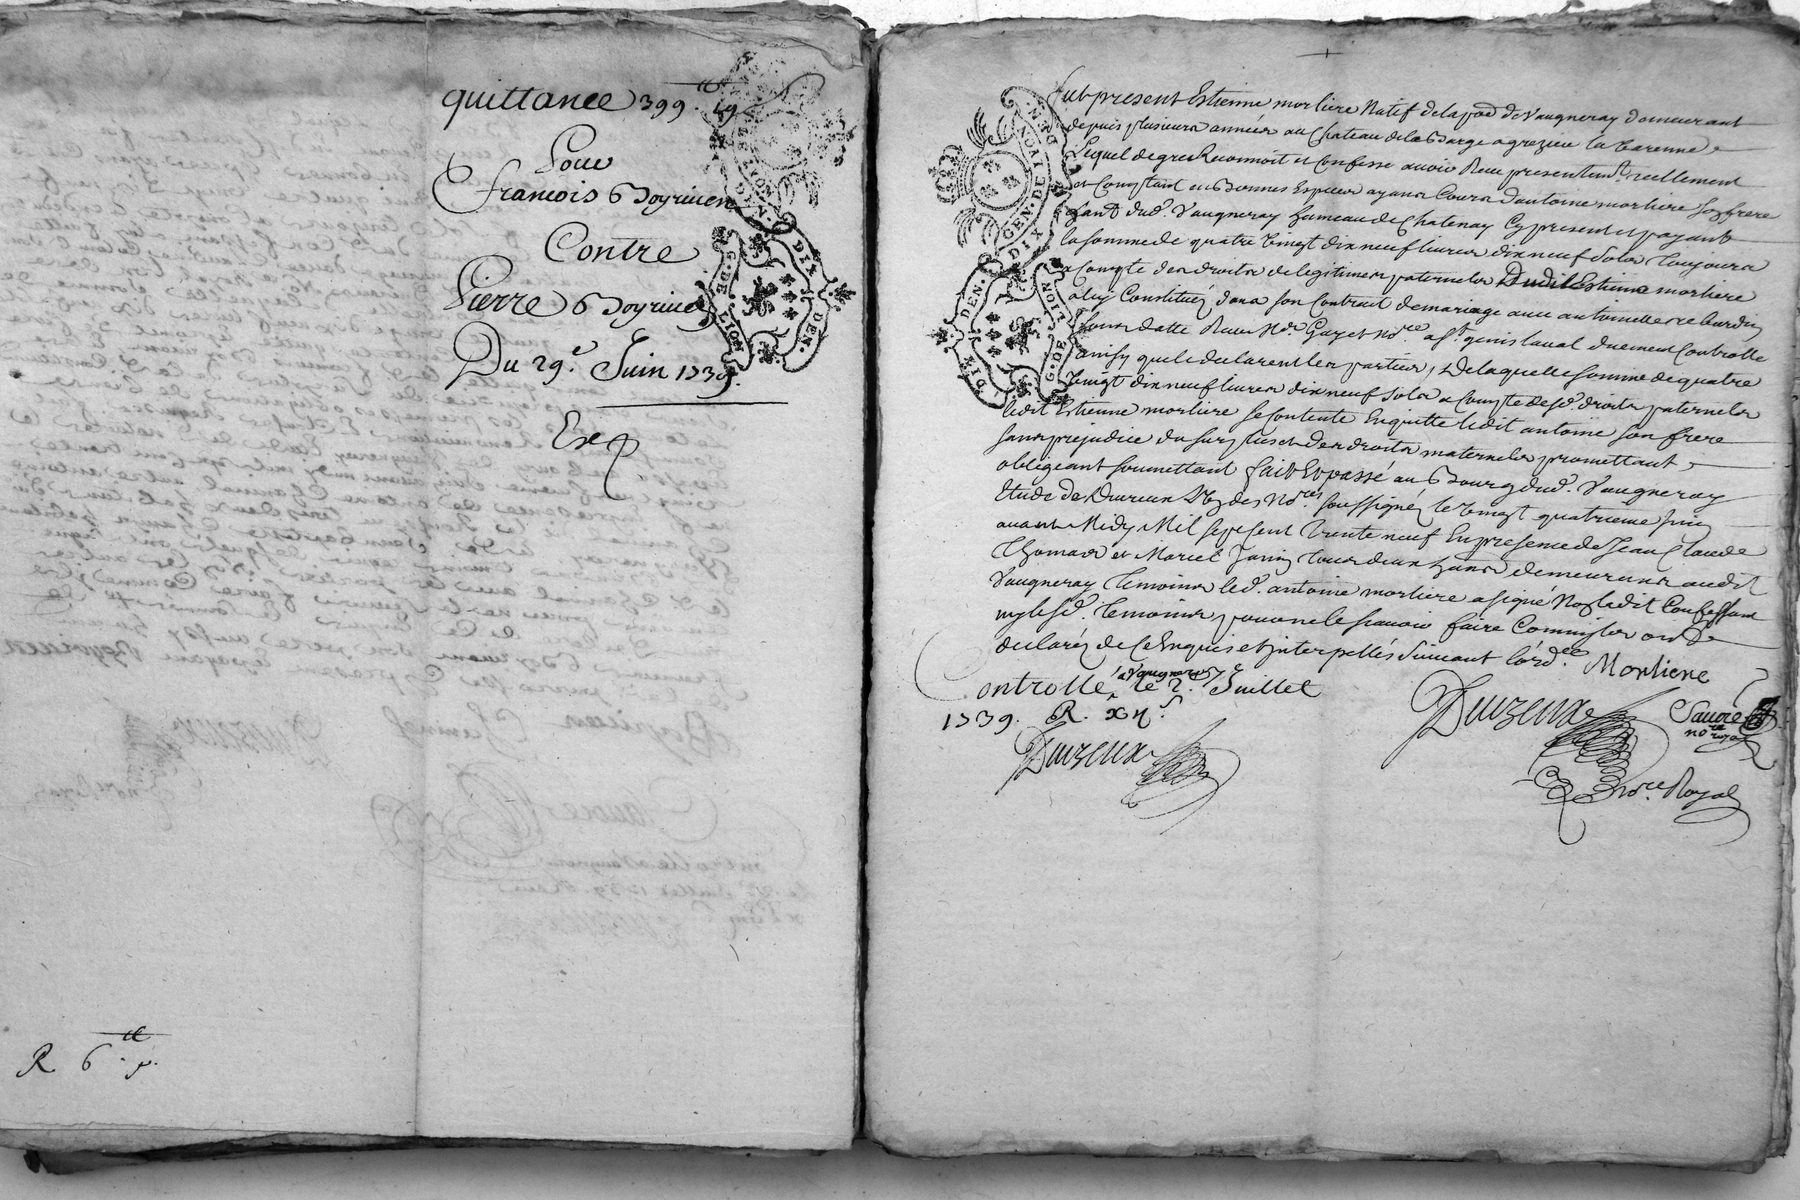 quittance 399 ₶ 19
Pour
françois Boyriven
Contre
Pierre Boyriven
Du 29e. Juin 1739.
Exp
R. 6 ₶
GEN. DE LION
DIX DEN.
G. DE LION
DIX DEN.
fut present Estienne morliere Natif de la parr. de Vaugneray demeurant
depuis plusieurs années au Chateau de la Barge a grezieu la Varenne
Lequel de gré Reconnoit et Confesse avoir Reçu presentemt. reellement
et Comptant en Bonnes Especes ayans Cours d'antoine morliere son frere
hant dud. Vaugneray hameau de Chatenay Cy present et payant
la somme de quatre Vingt dix neuf livres dix neuf Sols Toujours
a Compte des droits de legitimes paternels Dudit Estienne morliere
a luy Constitués dans son Contrat de mariage avec antoinette
sous datte Recu Me Guyet nore. a St. genis laval duement Controllé
ainsy que le declarent les parties, De laquelle somme de quatre
Vingt dix neuf livres dix neuf sols a Compte de sd. droits paternels
ledit Estienne morliere se Contente En quitte ledit antoine son frere
sans prejudice du surplus et des droits maternels promettant
obligeant soumettant fait et passé au Bourg dud. Vaugneray
Etude de Duvzeux L'un des Nores soussignés le Vingt quatrieme Juin
avant Midy Mil sept cent Trente neuf En presence de Jean Claude
Thomas et Marcel Janin Tous deux demeurans audit
Vaugneray Temoins led. antoine morliere a signé Non ledit Confessant
ny les d. Temoins pour ne le scavoir faire Comme ils ont
declarés de Ce Enquis et interpellés Suivant l'ord.ce
Morliere
Controllé a Vaugneray le 7e Juillet
1739. R.
GEN. DE LION
DIX DEN.
G. DE LION
DIX DEN.
Nore Royal